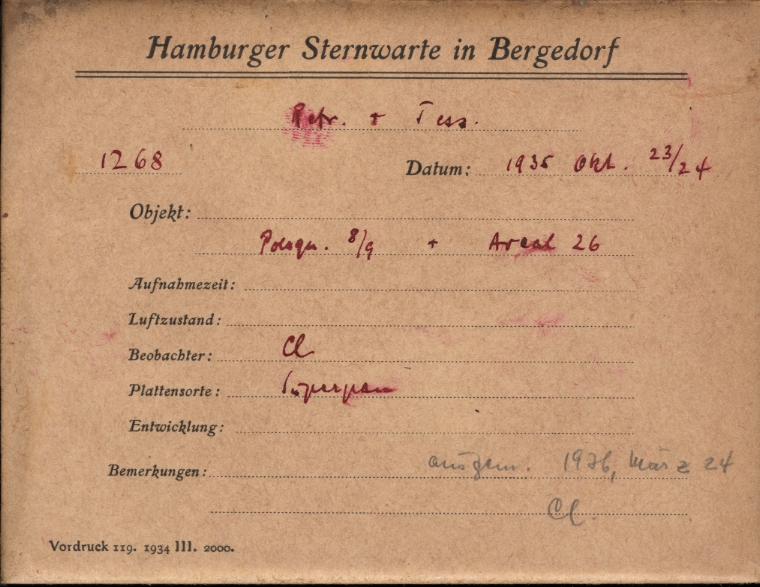 Hamburger Sternwarte in Bergedorf
Refr. + Tess.
1268 Datum: 1935 Okt. 23/24
Objekt:
Polsqu. 8/9 + Areal 26
Aufnahmezeit:
Luftzustand:
Beobachter: Cl
Plattensorte: Superpan
Entwicklung:
Bemerkungen: ausgem. 1936, März 24
Cl.
Vordruck 119. 1934 III. 2000.